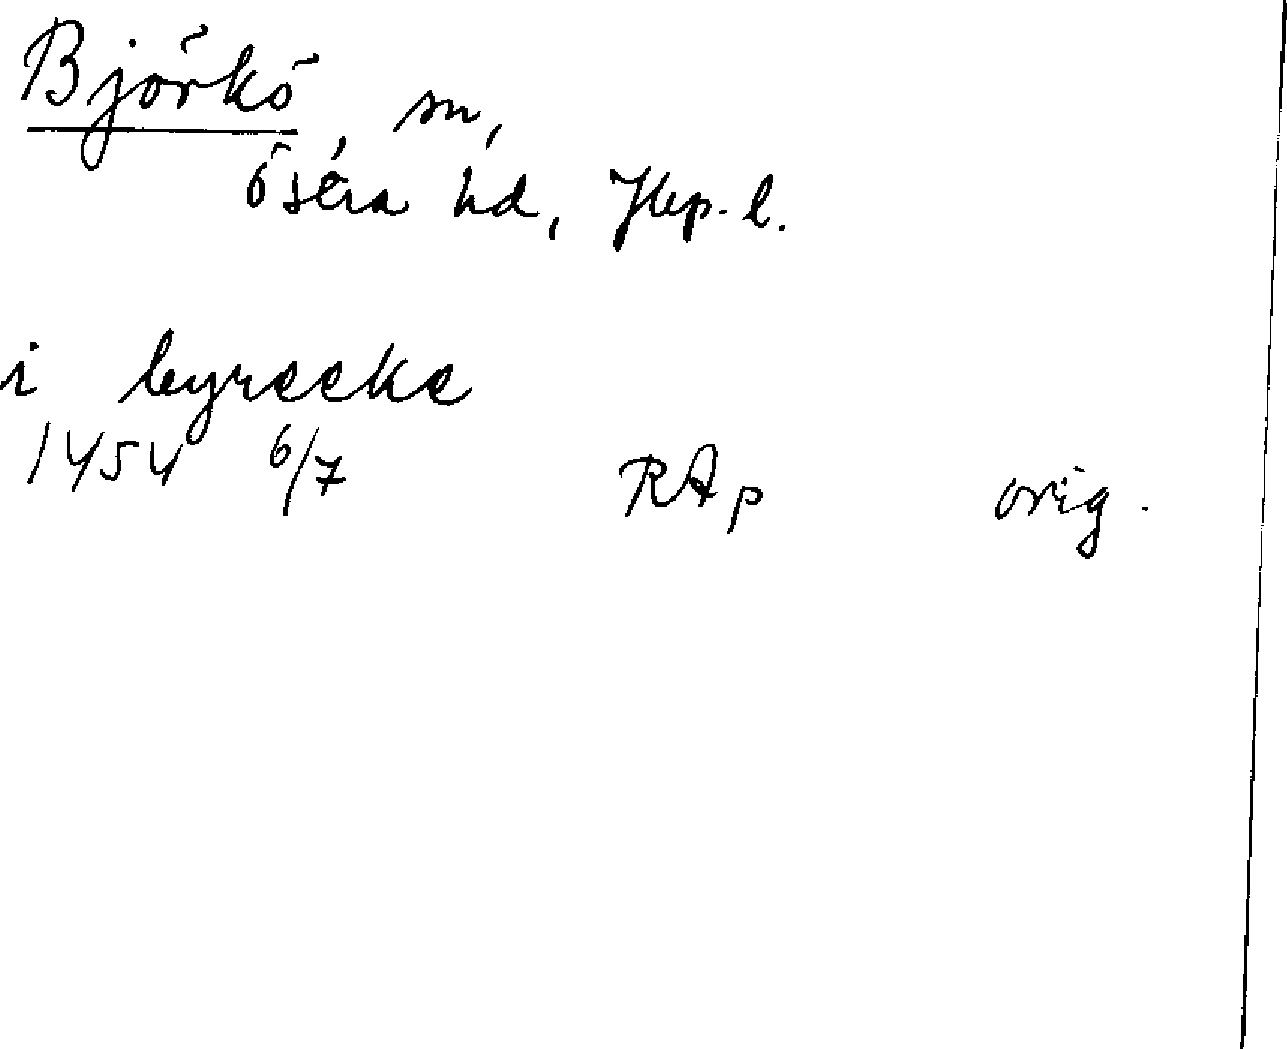 Björkö, sn,
Östra hd, Jkp. l.
i byreeke
1454 6/7 RAp orig.